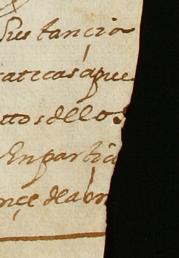 Sustancia
aticas aque
ttos dellos
En partic
nçe de abri